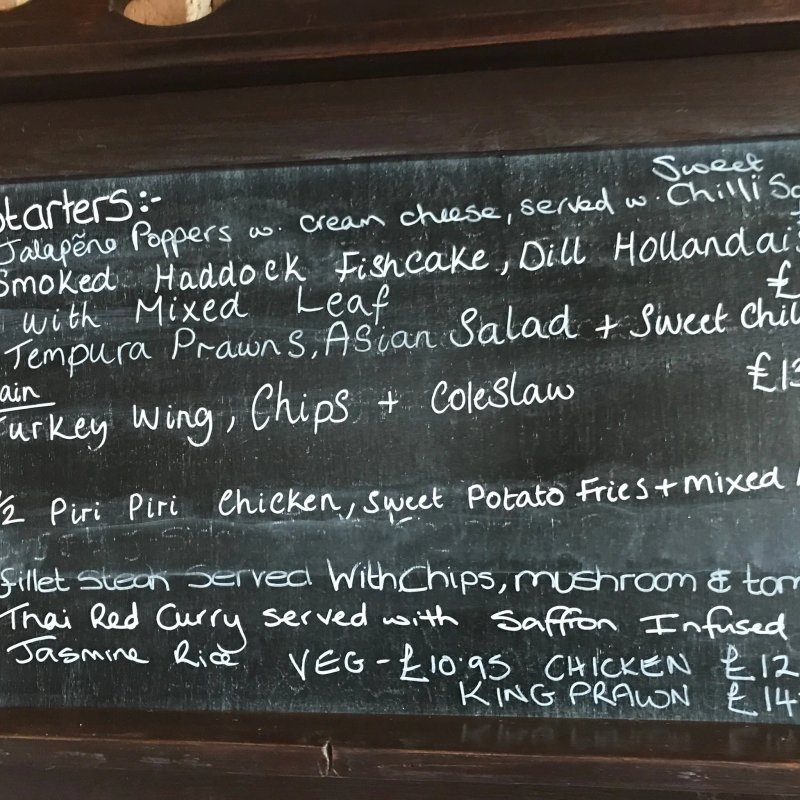 Starters:-
Sweet
Jalapeño Poppers w. cream cheese, served w. Chilli Sa
Smoked Haddock Fishcake, Dill Hollandais
£
with Mixed Leaf
Tempura Prawns, Asian Salad + Sweet Chil
ain
£13
Turkey Wing, Chips + Coleslaw
1/2 Piri Piri Chicken, Sweet Potato Fries + mixed
fillet steak served With Chips, mushroom & tom
Thai Red Curry served with Saffron Infused
Jasmine Rice VEG - £10.95 CHICKEN £12
KING PRAWN £14.